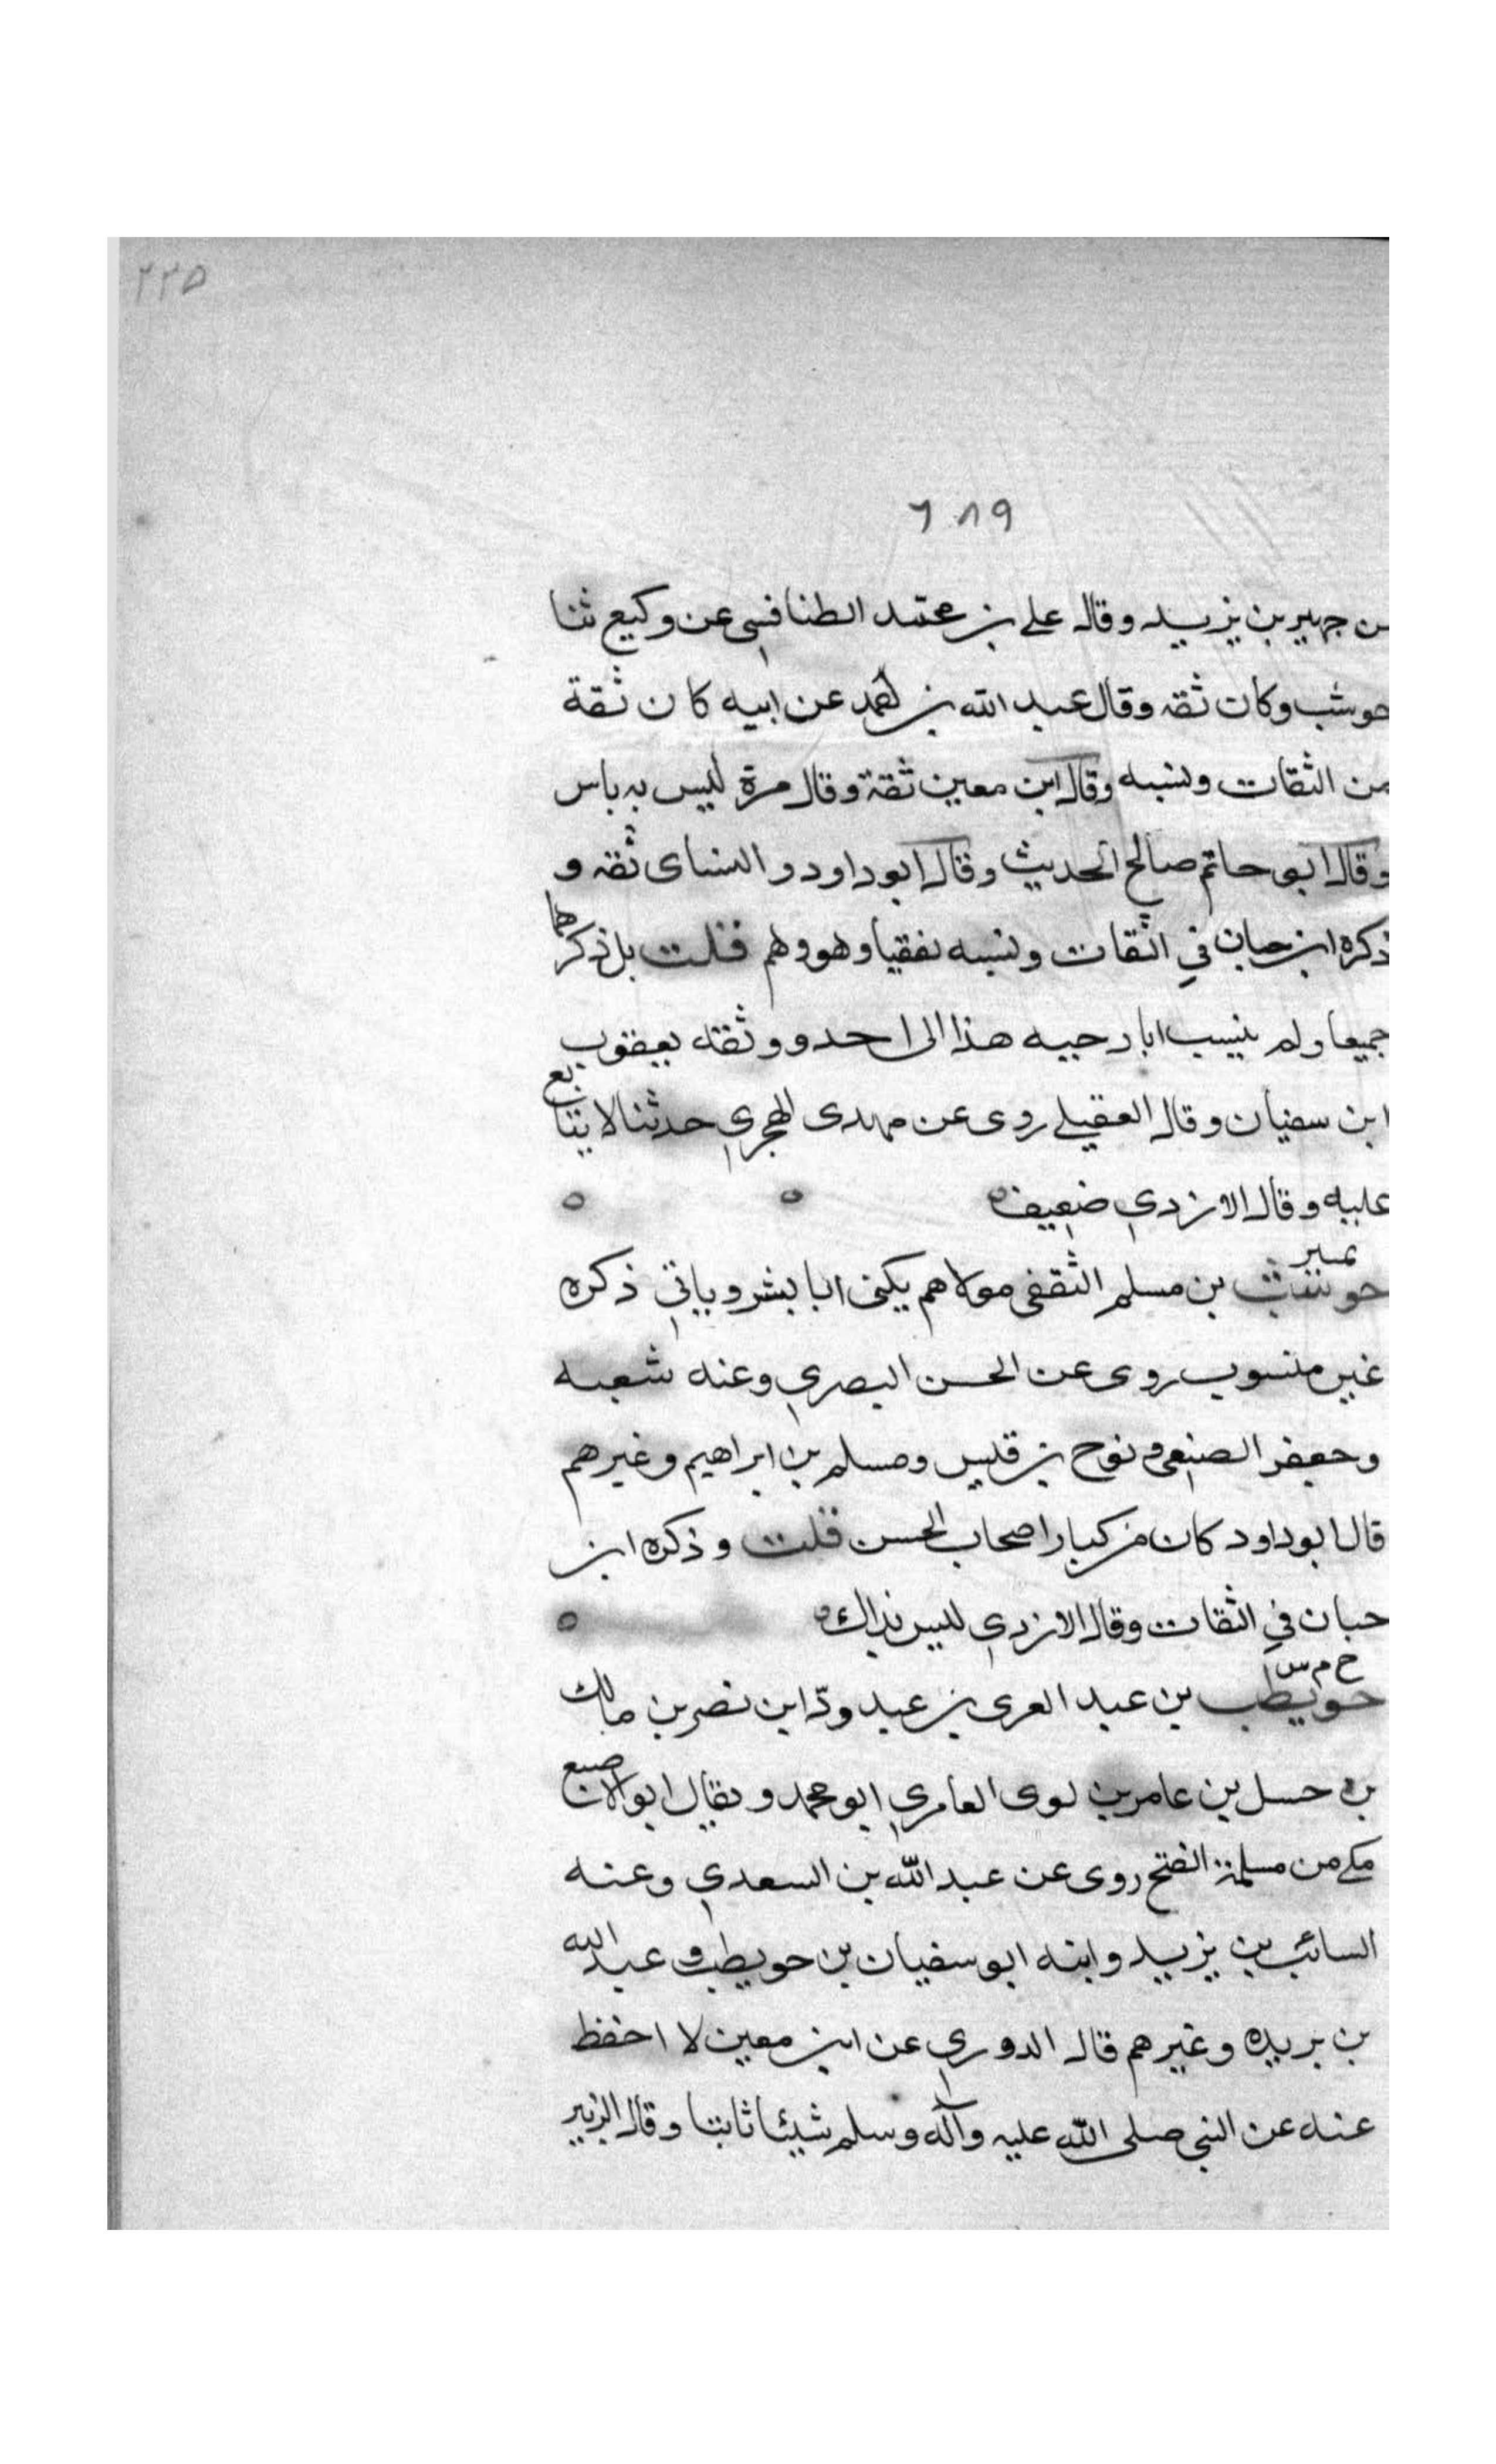 ٢٢٥
٦٨٩
بن جهير بن يزيد وقال علي بن محمد الطنافسي عن وكيع ثنا
حوشب وكان ثقه وقال عبد الله بن احمد عن ابيه كان ثقة
من الثقات ونسبه وقال ابن معين ثقة وقال مرة ليس به باس
وقال ابو حاتم صالح الحديث وقال ابو داود والنساى ثقه و
ذكره ابن حبان في الثقات ونسبه ثقفيا وهو وهم قلت بل ذكرهما
جميعا ولم ينسب ابا دحيه هذا الى احد ووثقه يعقوب
ابن سفيان وقال العقيلي روى عن مهدى الهجري حدثنا لا يتابع
عليه وقال الازدي ضعيف
تمييز
حوشب بن مسلم الثقفي مولاهم يكنى ابا بشر وياتي ذكره
غير منسوب روى عن الحسن البصري وعنه شعبه
وجعفر الضبعي و نوح بن قيس ومسلم بن ابراهيم وغيرهم
قال ابو داود كان من كبار اصحاب الحسن قلت وذكره ابن
حبان في الثقات وقال الازدي ليس بذاك
خ م س
حويطب بن عبد العزى بن عبد ودّ ابن نصر بن مالك
بن حسل بن عامر بن لوى العامري ابو محمد ويقال ابو الاصبع
مكي من مسلمة الفتح روى عن عبد الله بن السعدي وعنه
السائب بن يزيد وابنه ابو سفيان بن حويطب و عبد الله
بن بريده وغيرهم قال الدوري عن ابن معين لا احفظ
عنه عن النبي صلى الله عليه وآله وسلم شيئا ثابتا وقال الزبير